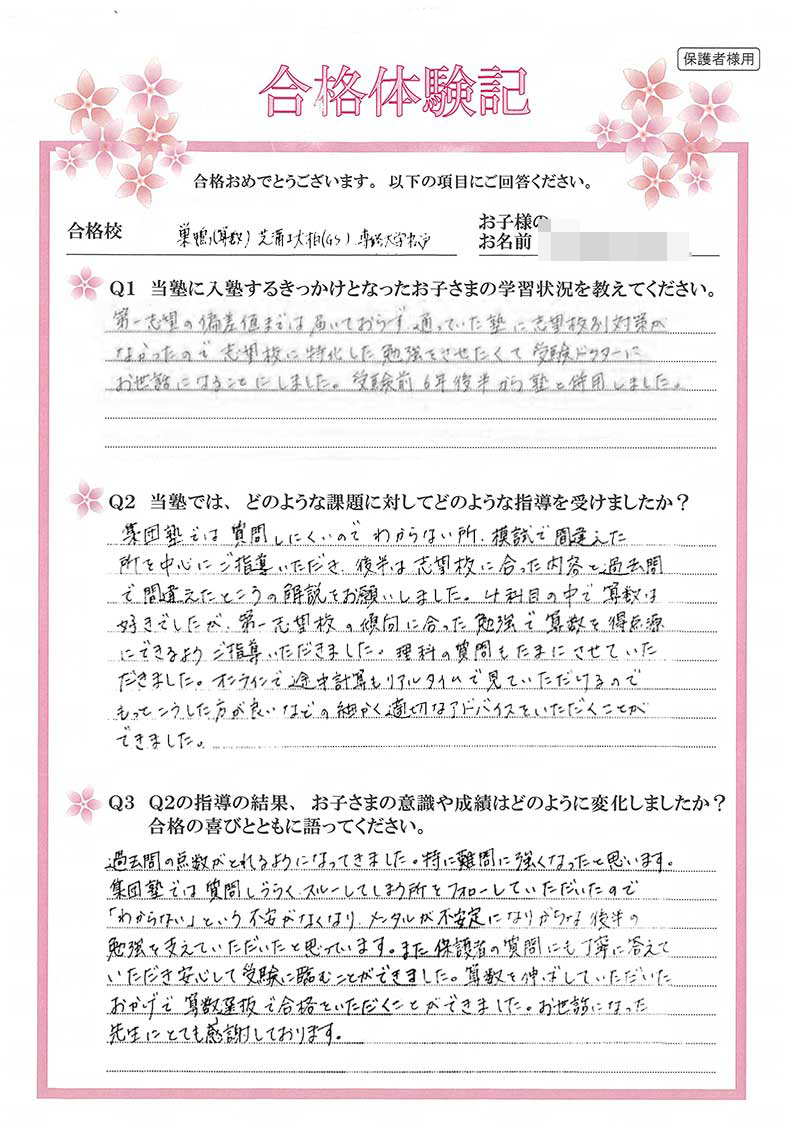 保護者様用
合格体験記
合格おめでとうございます。以下の項目にご回答ください。
合格校 巣鴨(算数) 芝浦工大柏(GS) 専修大学松戸
お子様の
お名前
Q1 当塾に入塾するきっかけとなったお子さまの学習状況を教えてください。
第一志望の偏差値までは届いておらず、通っていた塾に志望校別対策が
なかったので志望校に特化した勉強をさせたくて受験ドクターに
お世話になることにしました。受験前6年後半から塾と併用しました。
Q2 当塾では、どのような課題に対してどのような指導を受けましたか？
集団塾では質問しにくいのでわからない所、模試で間違えた
所を中心にご指導いただき、後半は志望校に合った内容と過去問
で間違えたところの解説をお願いしました。4科目の中で算数は
好きでしたが、第一志望校の傾向に合った勉強で算数を得点源
にできるようご指導いただきました。理科の質問もたまにさせていた
だきました。オンラインで途中計算もリアルタイムで見ていただけるので
もっとこうした方が良いなどの細かく適切なアドバイスをいただくことが
できました。
Q3 Q2の指導の結果、お子さまの意識や成績はどのように変化しましたか？
合格の喜びとともに語ってください。
過去問の点数がとれるようになってきました。特に難問に強くなったと思います。
集団塾では質問しづらく、スルーしてしまう所をフォローしていただいたので
「わからない」という不安がなくなり、メンタルが不安定になりがちな後半の
勉強を支えていただいたと思っています。また保護者の質問にも丁寧に答えて
いただき安心して受験に臨むことができました。算数を伸ばしていただいた
おかげで算数選抜で合格をいただくことができました。お世話になった
先生にとても感謝しております。